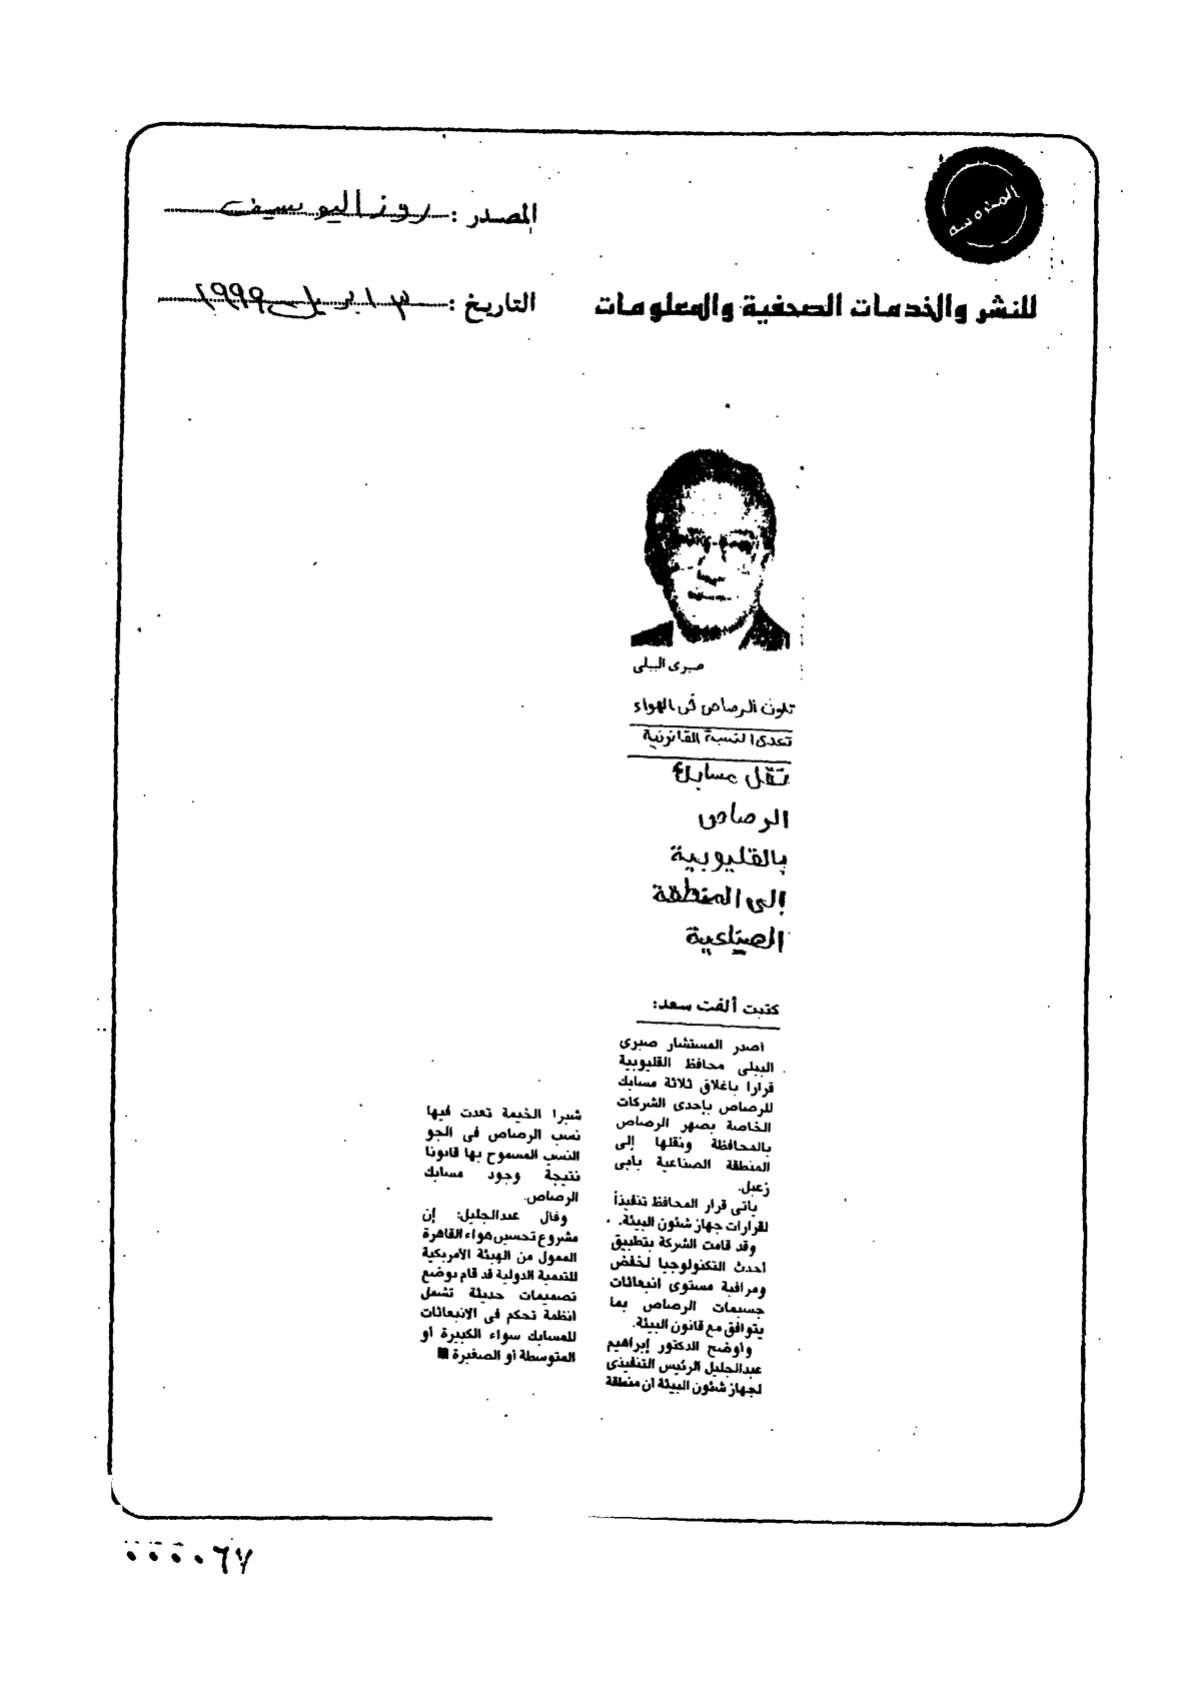 المحروسة
المصدر : روز اليوسف
للنشر والخدمات الصحفية والمعلومات
التاريخ : ٣ ابريل ١٩٩٩
صبرى الببلى
تلوث الرصاص فى الهواء
تعدى النسبة القانونية
نقل مسابك
الرصاص
بالقليوبية
إلى المنطقة
الصناعية
كتبت ألفت سعد:
أصدر المستشار صبرى
الببلى محافظ القليوبية
قرارا بإغلاق ثلاثة مسابك
للرصاص بإحدى الشركات
الخاصة بصهر الرصاص
بالمحافظة ونقلها إلى
المنطقة الصناعية بأبى
زعبل.
يأتى قرار المحافظ تنفيذاً
لقرارات جهاز شئون البيئة.
وقد قامت الشركة بتطبيق
أحدث التكنولوجيا لخفض
ومراقبة مستوى انبعاثات
جسيمات الرصاص بما
يتوافق مع قانون البيئة.
وأوضح الدكتور إبراهيم
عبدالجليل الرئيس التنفيذى
لجهاز شئون البيئة أن منطقة
شبرا الخيمة تعدت فيها
نسب الرصاص فى الجو
النسب المسموح بها قانونا
نتيجة وجود مسابك
الرصاص.
وقال عبدالجليل: إن
مشروع تحسين هواء القاهرة
الممول من الهيئة الأمريكية
للتنمية الدولية قد قام بوضع
تصميمات حديثة تشمل
أنظمة تحكم فى الانبعاثات
للمسابك سواء الكبيرة أو
المتوسطة أو الصغيرة ■
٠٠٠٠٦٧